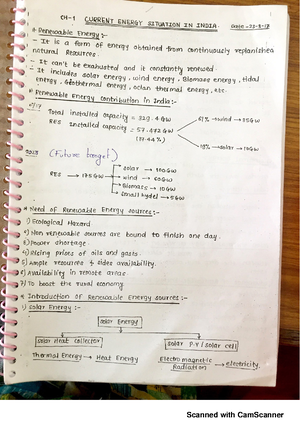 CH-1 CURRENT ENERGY SITUATION IN INDIA.
* Renewable Energy :-
- It is a form of energy obtained from continuously replenished
natural resources.
- It can't be exhausted and it constantly renewed.
- It includes solar energy, wind energy, Biomass energy, tidal
energy, Geothermal energy, ocean thermal energy, etc.
* Renewable Energy contribution in India :-
Total installed capacity = 329.4 GW
RES Installed capacity = 57.472 GW
(17.44%)
61% → wind → 35GW
19% → solar → 10GW
(Future target)
RES → 175 GW
solar → 100GW
wind → 60GW
Biomass → 10GW
small hydel → 5GW
* Need of Renewable Energy sources :-
1) Ecological Hazard
2) Non renewable sources are bound to finish one day.
3) Power shortage.
4) Rising prices of oils and gases.
5) Ample resources & sides availability.
6) Availability in remote areas
7) To boost the rural economy.
* Introduction of Renewable Energy sources :-
1) Solar Energy :-
Solar Energy
Solar Heat Collector
Solar P.V / solar cell
Thermal Energy → Heat Energy
Electro magnetic Radiation → electricity.
Scanned with CamScanner